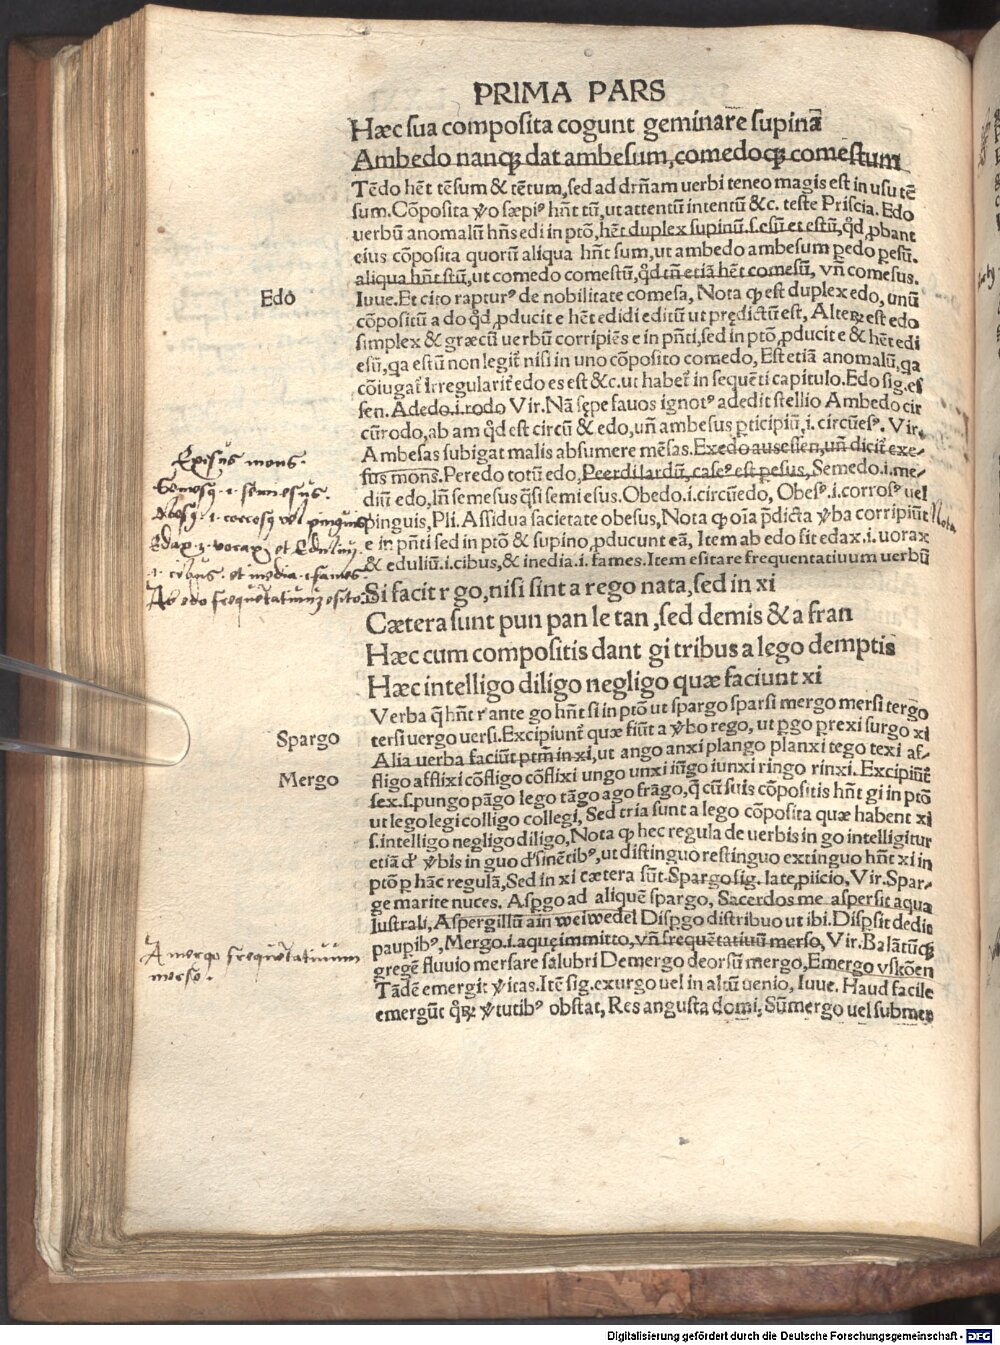 PRIMA PARS
Hæc sua composita cogunt geminare supinā
Ambedo nanqꝫ dat ambesum, comedoqꝫ comestum
Tēdo hēt tēsum & tētum, sed ad drñam uerbi teneo magis est in usu tē
sum. Cōposita ꝟo sæpi⁹ hñt tū, ut attentū intentū &c. teste Priscia. Edo
uerbū anomalū hñs edi in ptõ, hēt duplex supinū. s. esū et estū, qd̓ ꝓbant
eius cōposita quorū aliqua hñt sum, ut ambedo ambesum ꝑedo ꝑesū.
aliqua hñt stū, ut comedo comestū, qd̓ tñ etiā hēt comesū, vñ comesus.
Edo
Iuue. Et cito raptur⁹ de nobilitate comesa, Nota ꝙ est duplex edo, unū
cōpositū a do qd̓, ꝓducit e hēt edidi editū ut prędictū est, Alteꝝ est edo
simplex & græcū uerbū corripiēs e in pñti, sed in ptõ, ꝓducit e & hēt edi
esū, qa estū non legit̄ nisi in uno cōposito comedo, Est etiā anomalū, qa
cōiugat̄ irregularit̄ edo es est &c. ut habet̄ in sequēti capitulo. Edo sig. es
sen. Adedo .i. rodo Vir. Nā sępe fauos ignot⁹ adedit stellio Ambedo cir
cūrodo, ab am qd̓ est circū & edo, uñ ambesus ꝑticipiū, .i. circūes⁹. Vir.
Ambesas subigat malis absumere mēsas. Exedo aussessen, uñ dicit̄ exe-
Exesus mons.
sus mons. Peredo totū edo, Peerdilardū, case⁹ est pesus, Semedo .i. me-
Semesꝯ .i. semiesus.
diū edo, Iñ semesus q̄si semiesus. Obedo .i. circūedo, Obes⁹ .i. corros⁹ uel
Obesꝯ .i. corrosꝯ vel pinguis
pinguis, Pli. Assidua sacietate obesus, Nota ꝙ oīa p̄dicta ꝟba corripiūt
Nota
Edax .i. vorax et Edulium
e in pñti sed in ptõ & supino, ꝓducunt eā, Item ab edo fit edax .i. uorax
.i. cibus. et inedia .i. fames
& eduliū .i. cibus, & inedia .i. fames. Item esitare frequentatiuum uerbū
Ab edo frequētatiuum esito
Si facit r go, nisi sint a rego nata, sed in xi
Cætera sunt pun pan le tan, sed demis & a fran
Hæc cum compositis dant gi tribus a lego demptis
Hæc intelligo diligo negligo quæ faciunt xi
Verba q̄ hñt r ante go hñt si in ptõ ut spargo sparsi mergo mersi tergo
Spargo
tersi uergo uersi. Excipiunt̄ quæ fiūt a ꝟbo rego, ut ꝑgo ꝑrexi surgo xi
Alia uerba faciūt ptm̄ in xi, ut ango anxi plango planxi tego texi af-
Mergo
fligo afflixi cōfligo cōflixi ungo unxi iūgo iunxi ringo rinxi. Excipiūt̄
sex. s. pungo pāgo lego tāgo ago frāgo, q̄ cū suis cōpositis hñt gi in ptõ
ut lego legi colligo collegi, Sed tria sunt a lego cōposita quæ habent xi
s. intelligo negligo diligo, Nota ꝙ hec regula de uerbis in go intelligitur
etiā d̓ ꝟbis in guo d̓sinētib⁹, ut distinguo restinguo extinguo hñt xi in
ptõ ꝑ hāc regulā, Sed in xi cætera sūt. Spargo sig. late, ꝓiicio, Vir. Spar-
ge marite nuces. Aspgo ad aliquē spargo, Sacerdos me aspersit aqua
lustrali, Aspergillū ain weiwedel Dispgo distribuo ut ibi. Dispsit dedit
A mergo frequētatiuum
merso.
paupib⁹, Mergo .i. aquę immitto, vñ frequētatiuū merso, Vir. Balātūqꝫ
gregē fluuio mersare salubri Demergo deorsū mergo, Emergo vskōen
Tādē emergit ꝟitas. Itē sig. exurgo uel in altū uenio, Iuue. Haud facile
emergūt qꝝ ꝟtutib⁹ obstat, Res angusta domi, Sūmergo uel submer
Digitalisierung gefördert durch die Deutsche Forschungsgemeinschaft - DFG